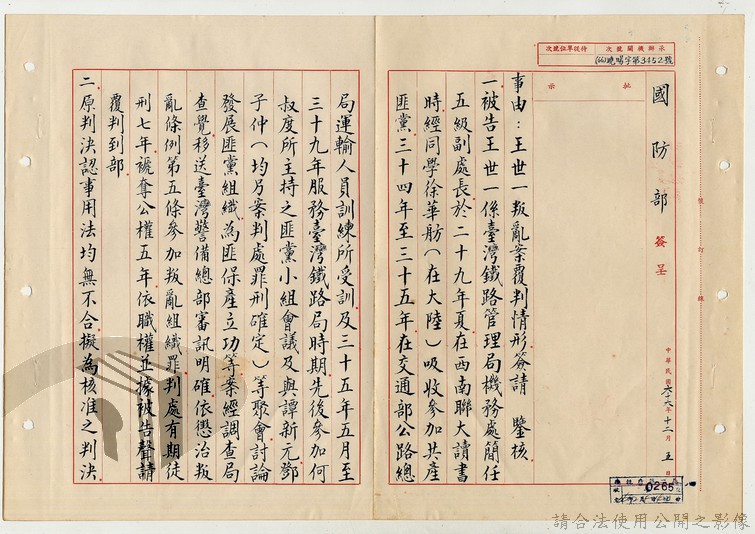 承辦機關號次
待從單位號次
(66)曉暘字第3452號
批
示
國防部
簽呈
中華民國六十六年十二月五日
號
訂
線
0265
事由：王世一叛亂案覆判情形簽請 鑒核
一被告王世一係臺灣鐵路管理局機務處簡任
五級副處長於二十九年夏在西南聯大讀書
時經同學徐華舫（在大陸）吸收參加共產
匪黨三十四年至三十五年在交通部公路總
局運輸人員訓練所受訓及三十五年五月至
三十九年服務臺灣鐵路局時期先後參加何
叔度所主持之匪黨小組會議及與譚新元鄧
子仲（均另案判處罪刑確定）等聚會討論
發展匪黨組織為匪保產立功等案經調查局
查覺移送臺灣警備總部審訊明確依懲治叛
亂條例第五條參加叛亂組織罪判處有期徒
刑七年褫奪公權五年依職權並據被告聲請
覆判到部
二原判決認事用法均無不合擬為核准之判決
請合法使用公開之影像